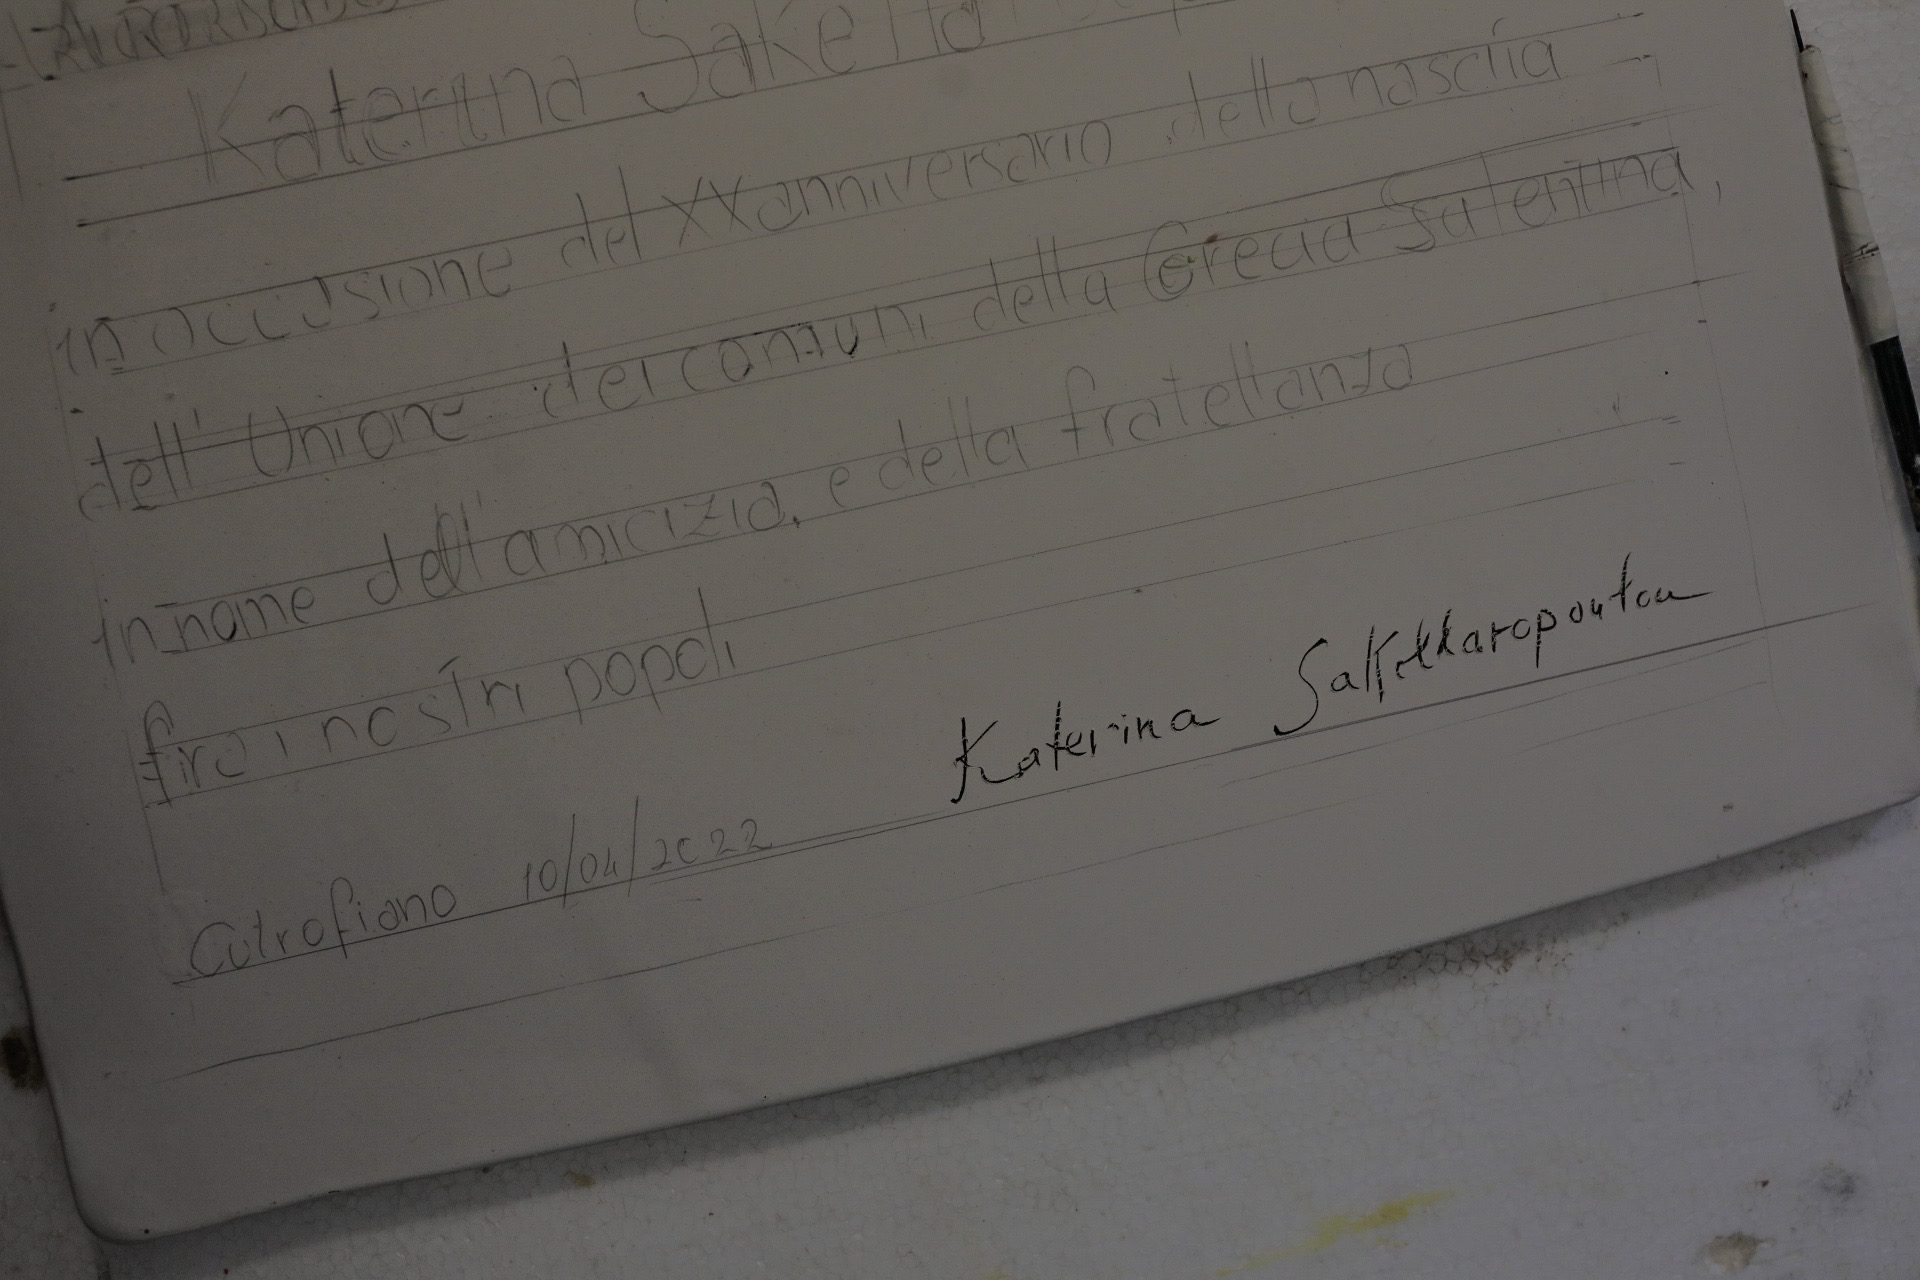 Katerina Sakella
in occasione del XX anniversario della nascita
dell'Unione dei comuni della Grecia Salentina,
in nome dell'amicizia, e della fratellanza
fra i nostri popoli
Katerina Sakellaropoulou
Cutrofiano 10/04/2022